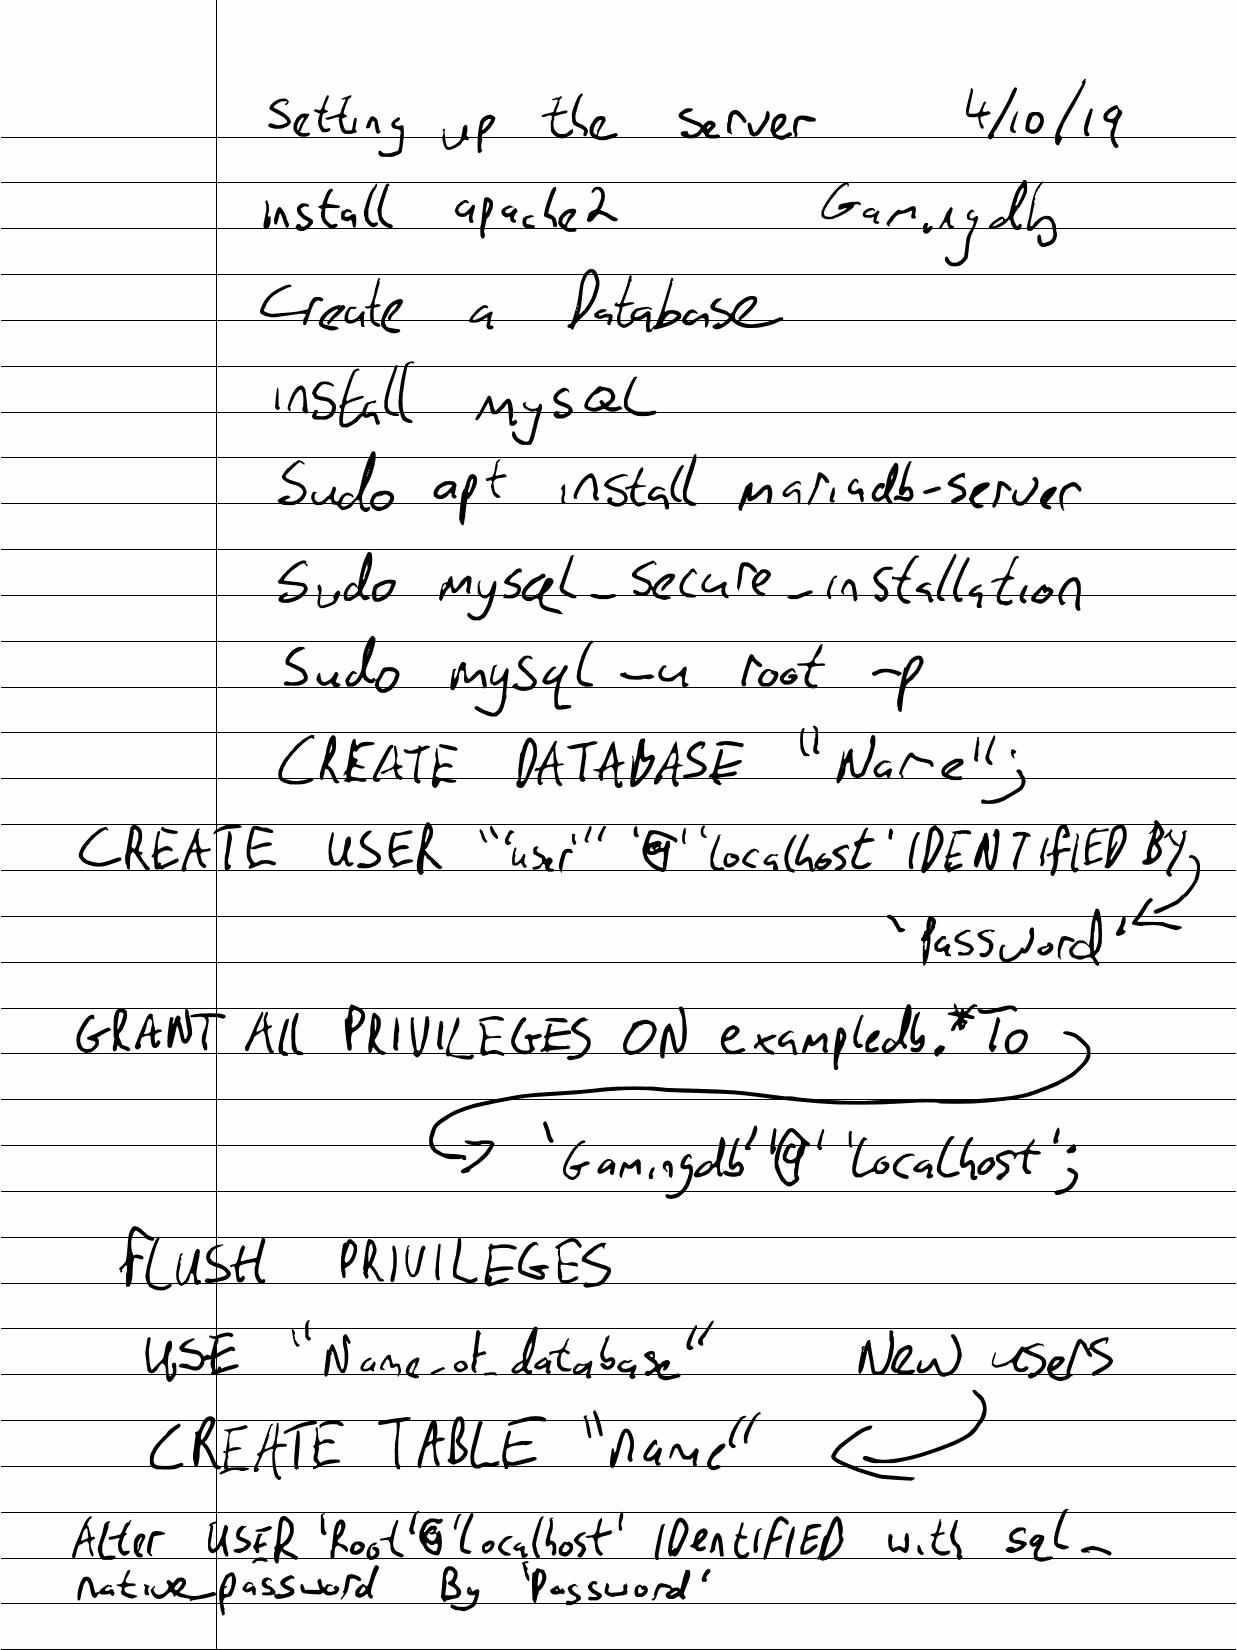 Setting up the server 4/10/19
install apache2 Gamingdb
Create a Database
install mysQL
Sudo apt install mariadb-server
Sudo mysql_secure_installation
Sudo mysql -u root -p
CREATE DATABASE "Name";
CREATE USER "'user'" '@' 'localhost' IDENTIFIED BY
'Password'
GRANT All PRIVILEGES ON exampledb.* To
'Gamingdb' '@' 'localhost';
FLUSH PRIVILEGES
USE "Name_of_database" New users
CREATE TABLE "name"
Alter USER 'Root'@'localhost' IDentIFIED with sql_
native_password By 'Password'